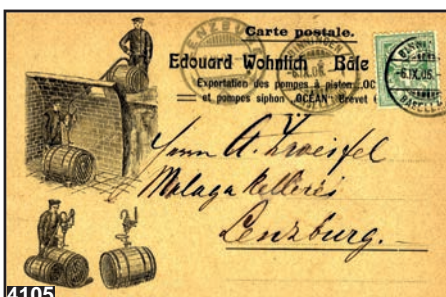 Carte postale.
Edouard Wohnlich Bâle
Exportation des pompes à piston „OC
et pompes siphon „OCEAN" Brevet
LENZBURG
BINNINGEN
-6.IX.05.
BINNINGEN
-6.IX.05.
BASELLAND
Herrn A. Zweifel
Malaga Kellerei
Lenzburg.
4105